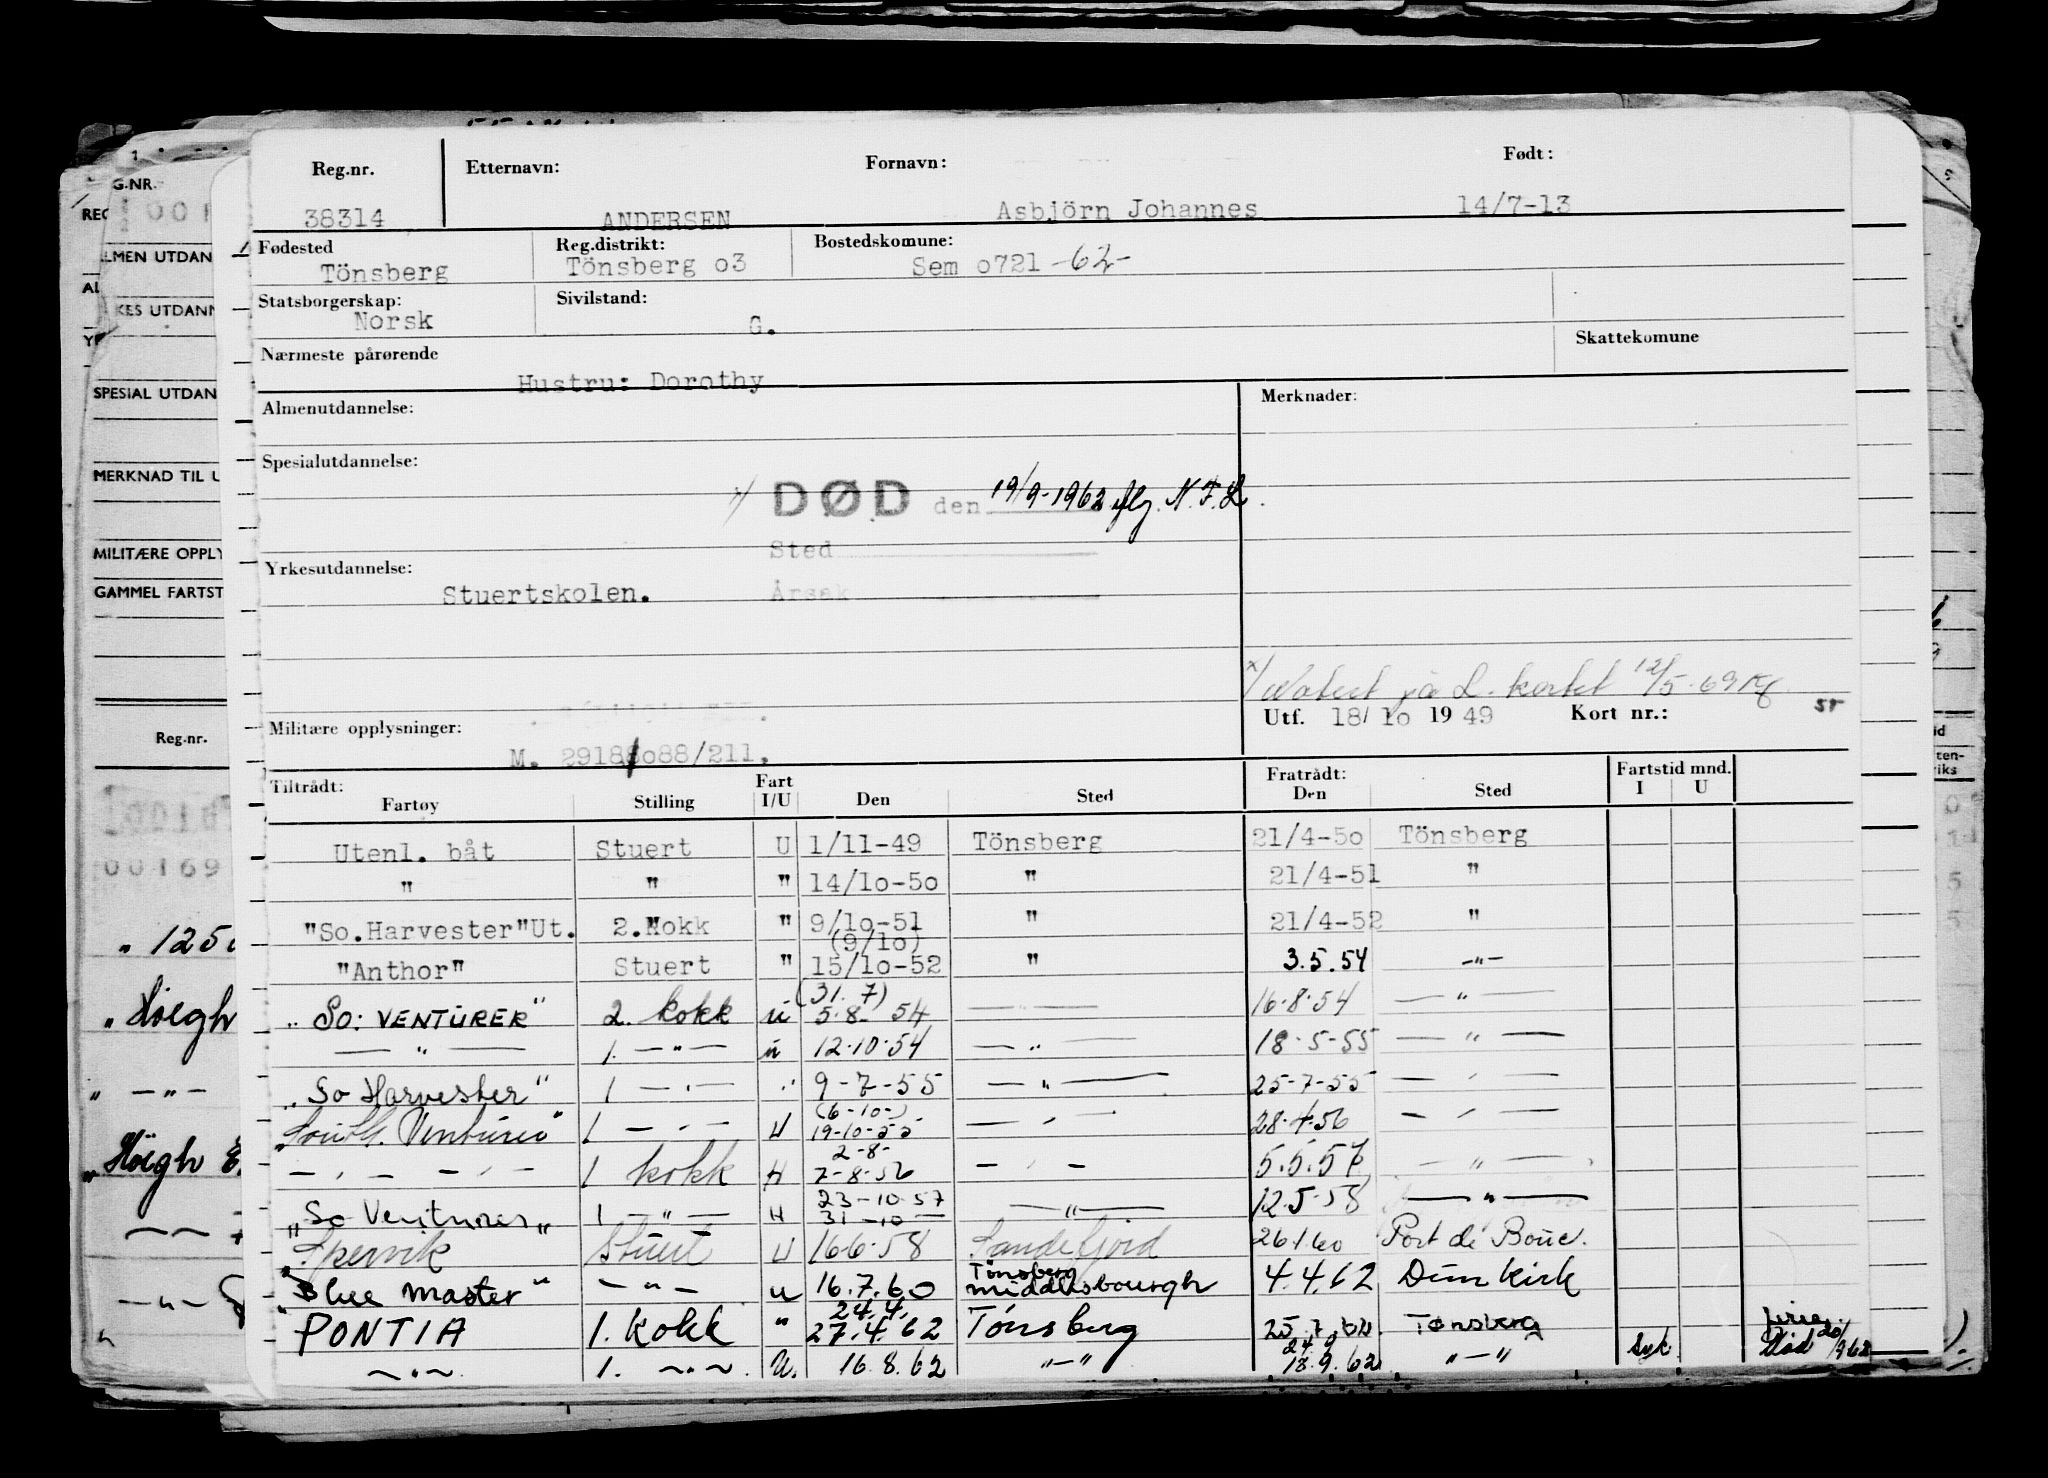 Reg.nr. Etternavn: Fornavn: Født:
38314 ANDERSEN Asbjörn Johannes 14/7-13
Fødested Reg.distrikt: Bostedskomune:
Tönsberg Tönsberg o3 Sem o721 -62-
Statsborgerskap: Sivilstand:
Norsk G.
Nærmeste pårørende Skattekomune
Hustru: Dorothy
Almenutdannelse: Merknader:
Spesialutdannelse:
x/ DØD den 19/9-1962 iflg. N.F.L.
Sted
Yrkesutdannelse:
Stuertskolen. Årsak
x/ Notert på L. kortet 12/5-69
Utf. 18/10 1949 Kort nr.:
Militære opplysninger:
M. 29188o88/211.
Tiltrådt: Fart Fratrådt: Fartstid mnd.
Fartøy Stilling I/U Den Sted Den Sted I U
Utenl. båt Stuert U 1/11-49 Tönsberg 21/4-5o Tönsberg
" " " 14/1o-5o " 21/4-51 "
"So.Harvester"Ut. 2.Kokk " 9/1o-51 " 21/4-52 "
(9/1o)
"Anthor" Stuert " 15/1o-52 " 3.5.54 -"-
(31. 7)
"So: VENTURER" 2. kokk u 5-8- 54 — " — 16-8-54 — " —
— " — 1. — " — u 12.10.54 — " — 18-5-55 — " —
"So Harvester" 1 — " — " 9-7-55 — " — 25-7-55 — " —
(6-10-)
"South. Venturer" 1 — " — U 19-10-55 — " — 28.4.56 — " —
2-8-
— " — — " — 1 kokk U 7-8-56 — " — 5.5.57 — " —
23-10-57
"So Venturer" 1 — " — U 31-10 — — " — 12.5.58 — " —
"Spervik Stuert U 166-58 Sandefjord 26160 Port de Boue.
Tönsberg
"Blue Master" — " — u 16.7.60 Middlesbourgh 4.4.62 Dunkirk
24.4.
PONTIA 1. Kokk " 27.4.62 Tönsberg 25.7.62. Tønsberg
— " — 1. — " — U. 16.8.62 " — " 18.9.62 " — " syk Død 20/9 62
G.NR.
REG
001
ALMEN UTDAN
AL
KES UTDANN
SPESIAL UTDAN
MERKNAD TIL U
MILITÆRE OPPLY
GAMMEL FARTST
Reg.-nr.
00169
" 125
"Höegh
" — " —
"Höegh E.
— " —